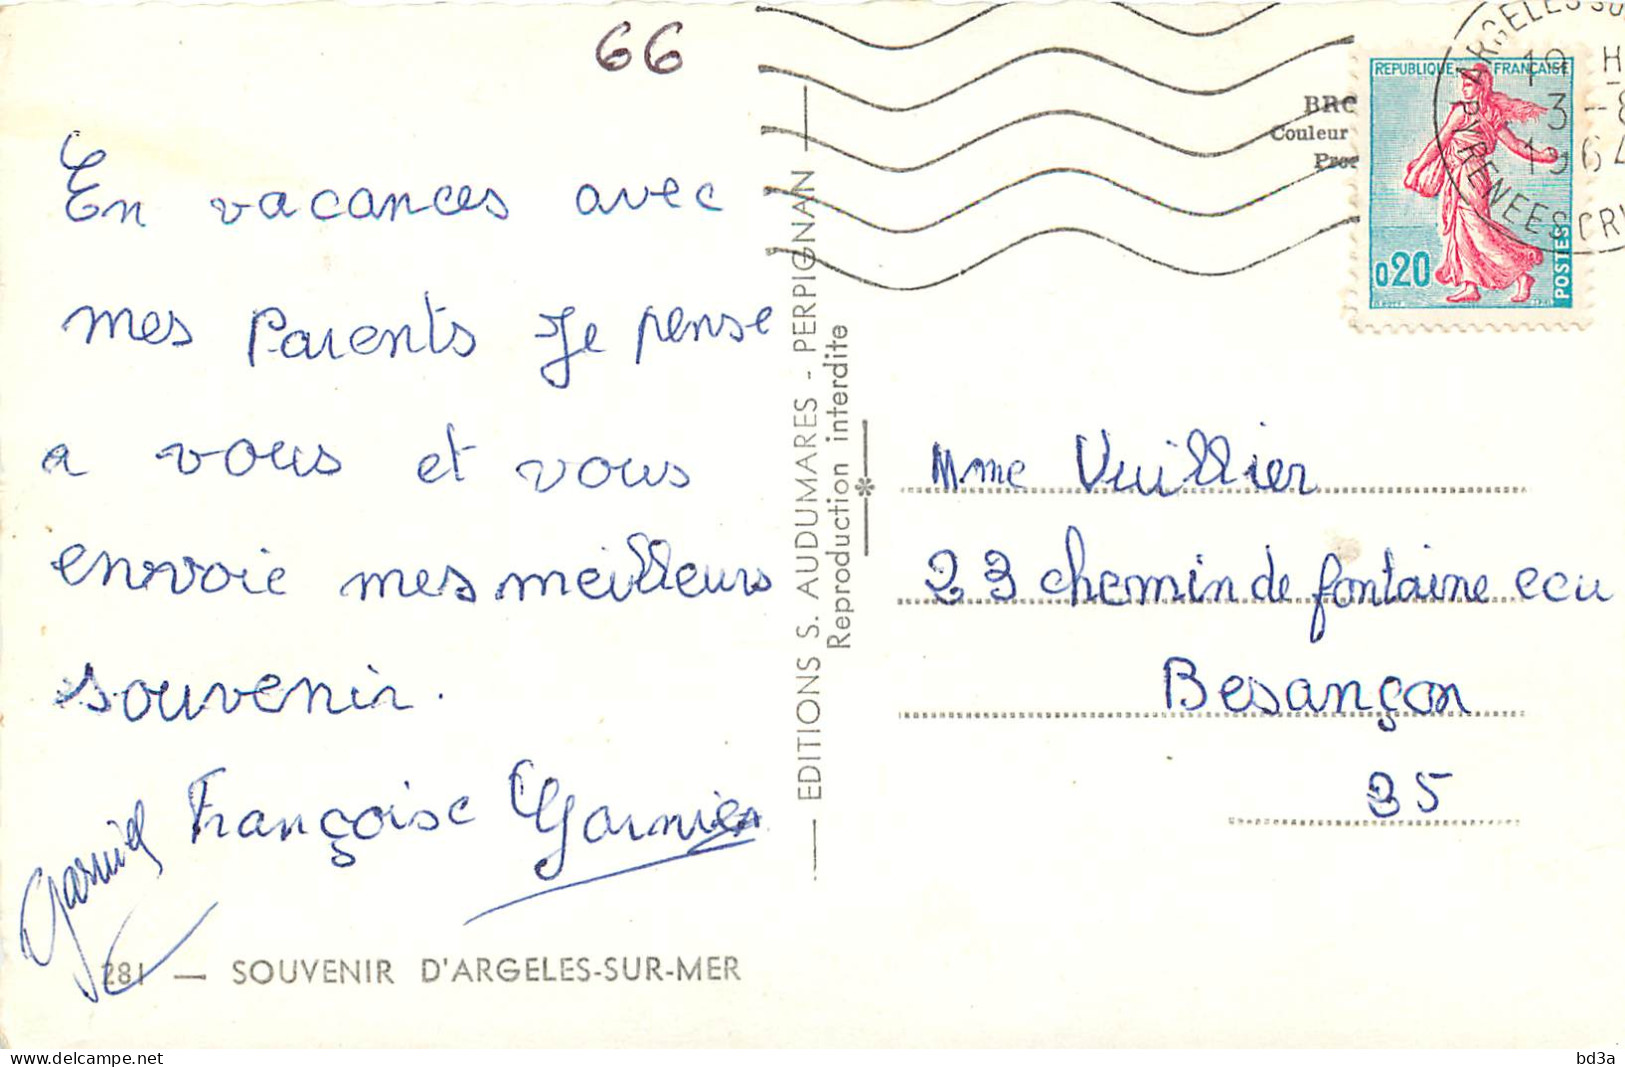 66
En vacances avec
mes Parents Je pense
a vous et vous
envoie mes meilleurs
souvenir.
Françoise Garnier
Garnier
281 — SOUVENIR D'ARGELES-SUR-MER
EDITIONS S. AUDUMARES - PERPIGNAN
Reproduction interdite
Couleur
REPUBLIQUE FRANÇAISE
0,20
POSTES
ARGELES SUR
H
3 - 8
1964
PYRENEES ORI
Mme Vuillier
23 chemin de fontaine ecu
Besançon
25
delcampe.net
bd3a